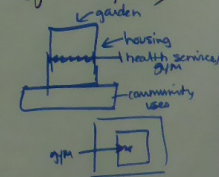 garden
housing
health services/
gym
community
uses
gym